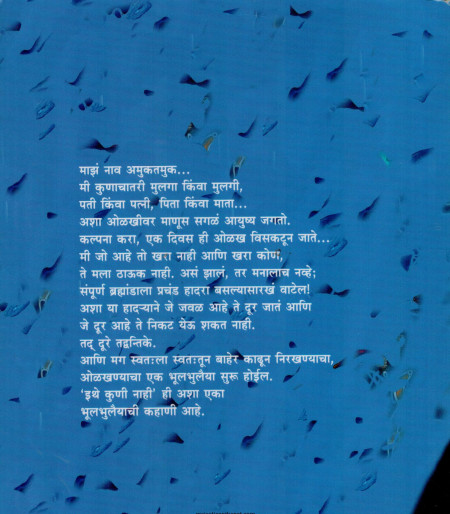 माझं नाव अमुकतमुक...
मी कुणाचातरी मुलगा किंवा मुलगी,
पती किंवा पत्नी, पिता किंवा माता...
अशा ओळखीवर माणूस सगळं आयुष्य जगतो.
कल्पना करा, एक दिवस ही ओळख विसकटून जाते...
मी जो आहे तो खरा नाही आणि खरा कोण,
ते मला ठाऊक नाही. असं झालं, तर मनालाच नव्हे;
संपूर्ण ब्रह्मांडाला प्रचंड हादरा बसल्यासारखं वाटेल!
अशा या हादऱ्याने जे जवळ आहे ते दूर जातं आणि
जे दूर आहे ते निकट येऊ शकत नाही.
तद् दूरे तद्वन्तिके.
आणि मग स्वतःला स्वतःतून बाहेर काढून निरखण्याचा,
ओळखण्याचा एक भूलभुलैया सुरू होईल.
‘इथे कुणी नाही’ ही अशा एका
भूलभुलैयाची कहाणी आहे.